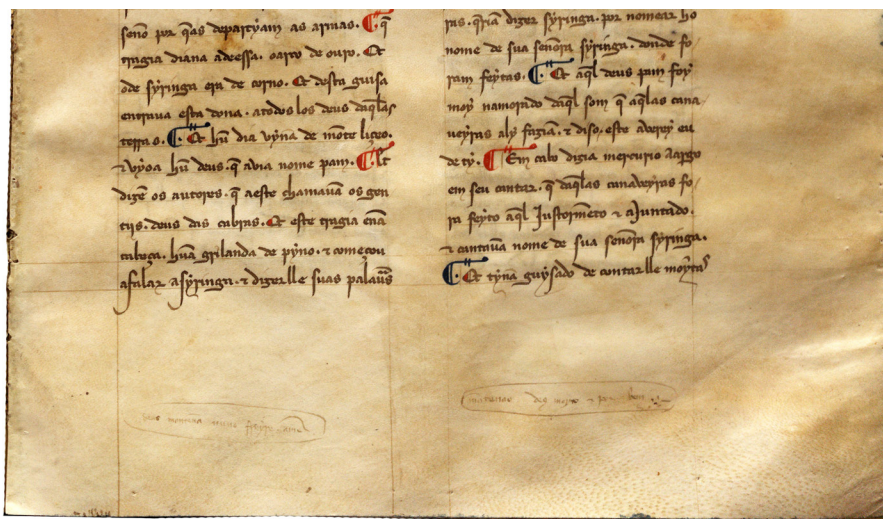 senõ por q̃as departyam as armas. Et q̃
tragia diana adeessa. oarco de ouro. Et
ode syringa era de corno. Et desta guisa
entrava esta dona. atodos los deus daq̃las
terras. Et hũ dia vyña de mõte liçeo.
⁊ vyoa hũ deus. q̃ avia nome pam. Et
dizẽ os autores. q̃ aeste chamauã os gen
tijs. deus das cabras. Et este tragia ẽna
cabeça. hũa grilanda de pyno. ⁊ começou
afalar asyringa. ⁊ dizerlle suas palaũs
ras. q̃ria dizer syringa. por nomear ho
nome de sua señora syringa. donde fo
ram feytas. Et aq̃l deus pam foy
moy namorado daq̃l som q̃ aq̃las cana
ueyras aly fazian. ⁊ diso. este auerey eu
de ty. Em cabo dizia mercurio aargo
em seu cantar. q̃ daq̃las canaueyras fo
ra feyto aq̃l jnstormẽto ⁊ ajuntado.
⁊ cantaua nome de sua señora syringa.
Et tyña guysado de contarlle moytas